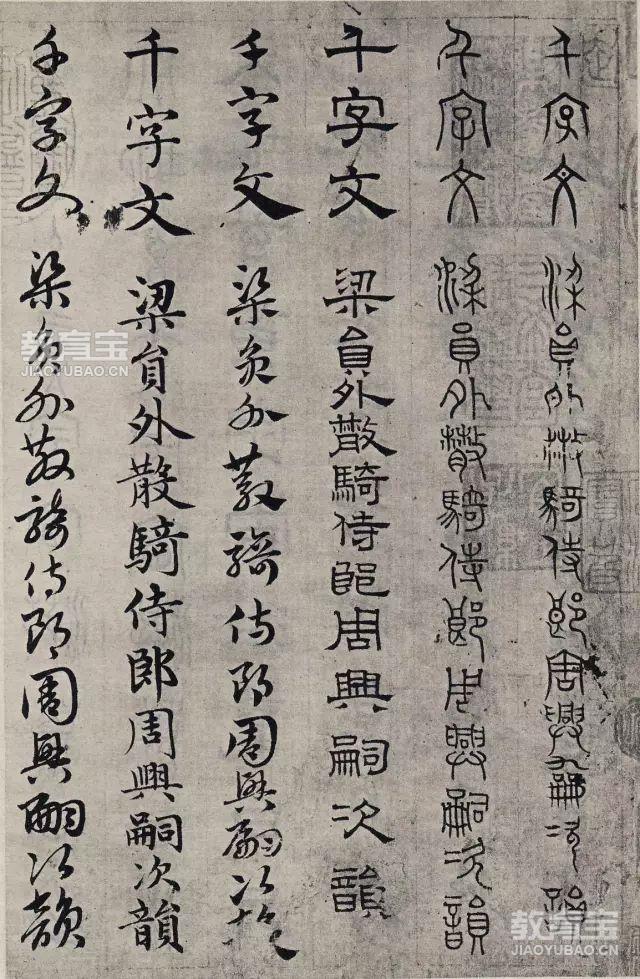 千字文 梁員外散騎侍郎周興嗣次韻
千字文 梁員外散騎侍郎周興嗣次韻
千字文 梁員外散騎侍郎周興嗣次韻
千字文 梁員外散騎侍郎周興嗣次韻
千字文 梁員外散騎侍郎周興嗣次韻
千字文 梁員外散騎侍郎周興嗣次韻
教育宝
JIAOYUBAO.CN
教育宝
JIAOYUBAO.CN